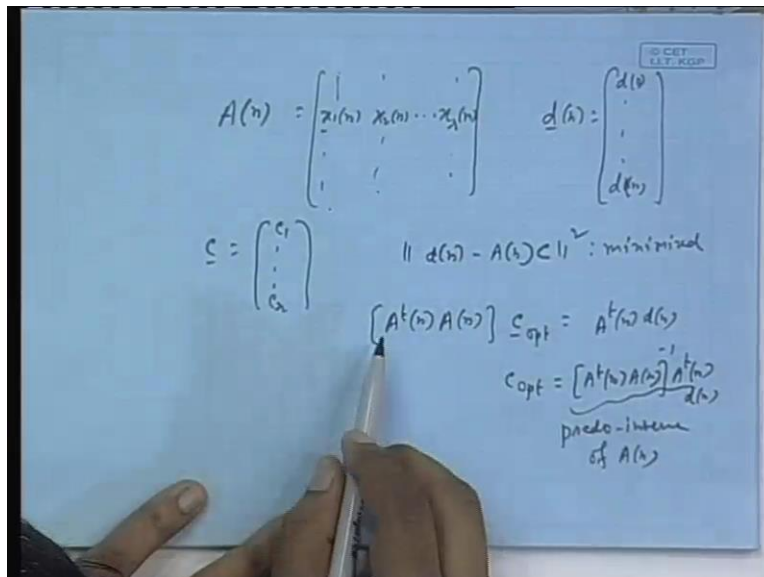 © CET
I.I.T. KGP
A(n) = [ x₁(n) x₂(n) ⋯ xᵣ(n) ] d(n) = [ d(1) ⋮ d(n) ]
c = [ c₁ ⋮ cᵣ ] || d(n) - A(n) c ||² : minimized
[Aᵗ(n) A(n)] c_opt = Aᵗ(n) d(n)
c_opt = [Aᵗ(n) A(n)]⁻¹ Aᵗ(n)
d(n)
psedo-inverse
of A(n)